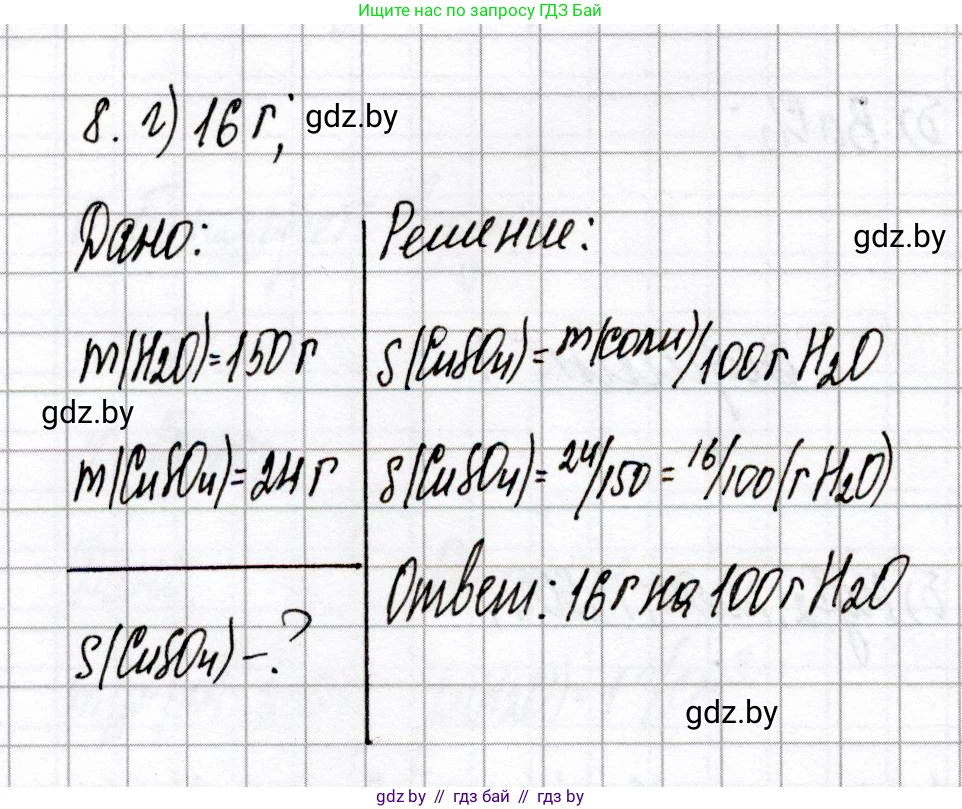 Ищите нас по запросу ГДЗ Бай
8. г) 16 г;
gdz.by
Дано:
m(H2O)=150 г
gdz.by
m(CuSO4)=24 г
S(CuSO4) – ?
Решение:
gdz.by
S(CuSO4) = m(соли)/100 г H2O
S(CuSO4) = 24/150 = 16/100 (г H2O)
Ответ: 16 г на 100 г H2O
gdz.by
gdz.by // гдз бай // гдз by